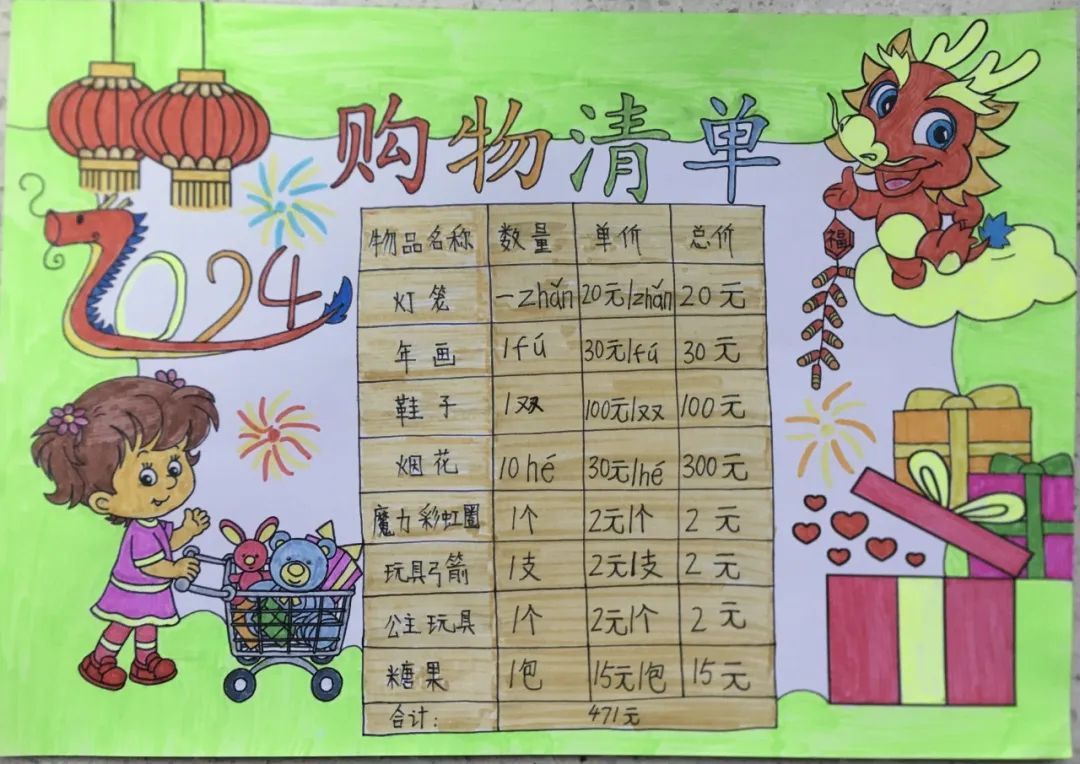 购物清单
2024
福
物品名称 数量 单价 总价
灯笼 一zhǎn 20元/zhǎn 20元
年画 1fú 30元/fú 30元
鞋子 1双 100元/双 100元
烟花 10hé 30元/hé 300元
魔力彩虹圈 1个 2元/个 2元
玩具弓箭 1支 2元/支 2元
公主玩具 1个 2元/个 2元
糖果 1包 15元/包 15元
合计: 471元